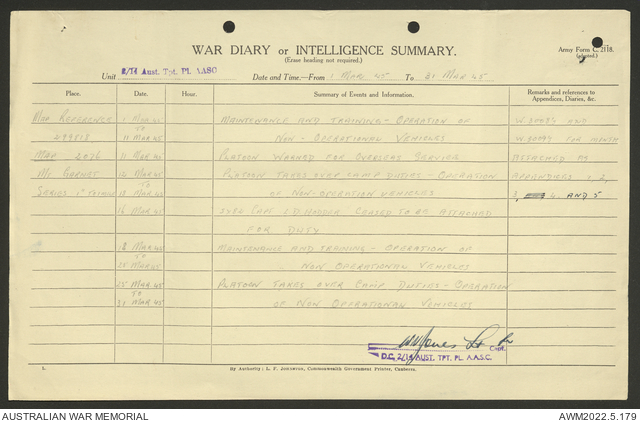 WAR DIARY or INTELLIGENCE SUMMARY.
(Erase heading not required.)
Army Form C. 2118.
(adapted.)
Unit 2/14 Aust. Tpt. Pl. AASC
Date and Time.—From 1 MAR 45 To 31 MAR 45
Place. Date. Hour. Summary of Events and Information. Remarks and references to Appendices, Diaries, &c.
MAP REFERENCE 1 MAR 45 MAINTENANCE AND TRAINING - OPERATION OF
TO
11 MAR 45 NON - OPERATIONAL VEHICLES FOR MONTH
MAP 11 MAR 45 PLATOON WARNED FOR OVERSEAS SERVICE ATTACHED AS
MT GARNET MAR 45 PLATOON TAKES OVER CAMP DUTIES - OPERATION APPENDICES
SERIES TO
MAR 45 OF NON-OPERATION VEHICLES 4 AND 5
16 MAR 45 CAPT CEASED TO BE ATTACHED
FOR DUTY
18 MAR 45 MAINTENANCE AND TRAINING - OPERATION OF
TO
25 MAR 45 NON OPERATIONAL VEHICLES
25 MAR 45 PLATOON TAKES OVER CAMP DUTIES - OPERATION
TO
31 MAR 45 OF NON OPERATIONAL VEHICLES
Capt.
O.C. 2/14 AUST. TPT. PL. A.A.S.C.
By Authority: L. F. Johnston, Commonwealth Government Printer, Canberra.
AUSTRALIAN WAR MEMORIAL
AWM2022.5.179